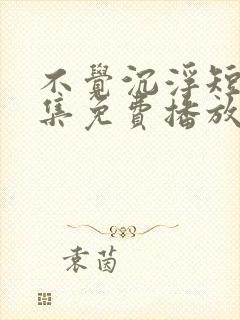 不覺沉浮短
集免費播放
袁茵